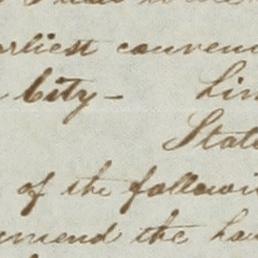 arliest conven
City - Lin
State
of the followin
mmend the ha